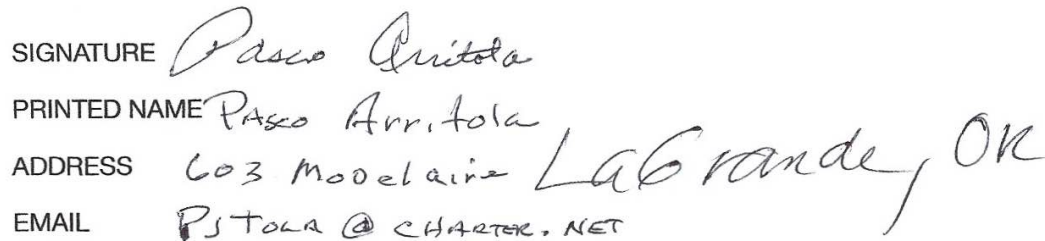 SIGNATURE Pasco Arritola
PRINTED NAME PASCO Arritola
ADDRESS 603 Modelaire LaGrande, OR
EMAIL PJTOLA @ CHARTER.NET